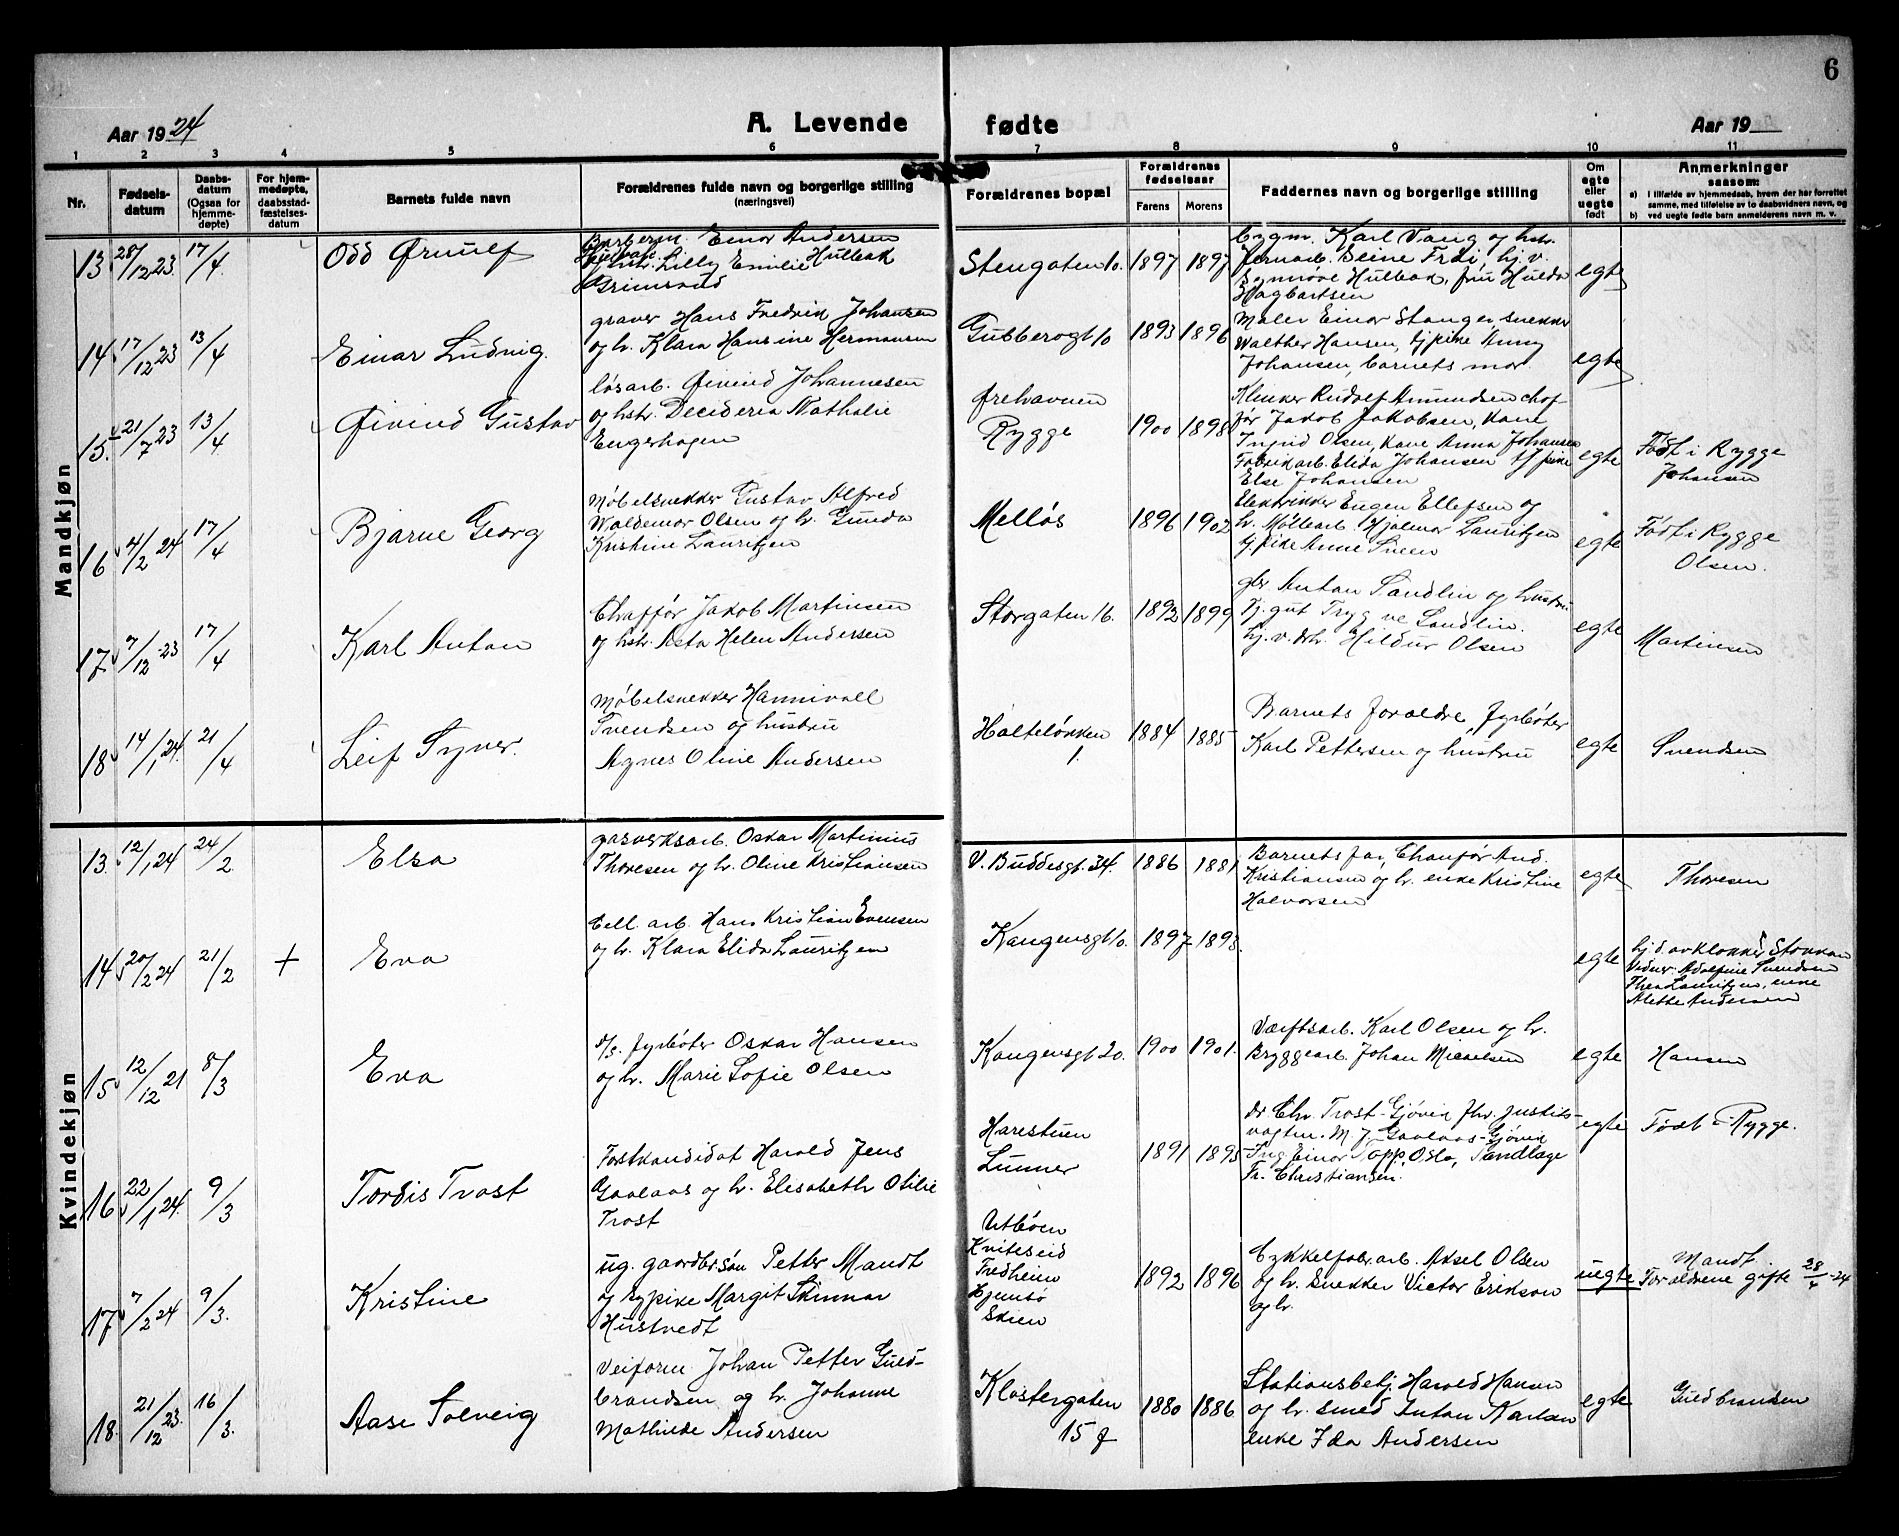 6
Aar 1924
A. Levende
fødte
Aar 19
1 2 3 4 5 6 7 8 9 10 11
Nr.
Fødsels-
datum
Daabs-
datum
(Ogsaa for
hjemme-
døpte)
For hjem-
medøpte,
daabsstad-
fæstelses-
datum
Barnets fulde navn
Forældrenes fulde navn og borgerlige stilling
(næringsvei)
Forældrenes bopæl
Forældrenes
fødselsaar
Farens
Morens
Faddernes navn og borgerlige stilling
Om
egte
eller
uegte
født
Anmerkninger
saasom:
a) I tilfælde av hjemmedaab, hvem der har forrettet
samme, med tilføielse av to daabsvidners navn, og
b) ved uegte fødte barn anmelderens navn m. v.
Mandkjøn
13 28/12 23. 17/4 Odd Ørnulf
Barberm. Einar Andersen
hstr. Lilly Emilie Hulbak
Grimsrud
Stengaten 10. 1897 1897
bygm. Karl Vang og hstr.
jernarb. Beine Frøi, hj.v.
Synnøve Hulbak, fru Hulda
Hagbartsen
egte
14 17/12 23 13/4 Einar Ludvig.
graver Hans Fredrik Johansen
og h. Klara Hansine Hermansen
Gubberogt 10 1893 1896
Maler Einar Stanger, snekker
Walther Hansen, tj pike Anny
Johansen, barnets mor.
egte
15. 21/7 23 13/4 Øivind Gustav
løsarb. Øivind Johannesen
og hstr. Decideria Nathalie
Engerhagen
Ørehavnen
Rygge
1900 1898
Klinker Rudolf Amundsen chof-
før Jakob Jakobsen, Kone
Ingrid Olsen, Kone Anna Johansen
Fabrikarb. Elida Johansen tj pike
Else Johansen
egte
Født i Rygge
Johansen
16 4/2 24 17/4 Bjarne Georg
Møbelsnekker Gustav Alfred
Waldemar Olsen og h. Gunda
Kristine Lauritzen
Melløs 1896 1902
Elektriker Eugen Ellefsen og
h. Møllearb. Hjalmar Lauritzen
tj. pike Anne Sneen
egte
Født i Rygge
Olsen.
17 7/12 23 17/4 Karl Anton
Chaffør Jakob Martinsen
og hstr. Asta Helen Andersen
Storgaten 16. 1893 1899
gbr Anton Sandlin og hustru
Tj. gut Trygve Sandlin.
hj. v. dtr. Hildur Olsen
egte
Martinsen
18 14/1 24. 21/4 Leif Syver.
Møbelsnekker Hannivall
Svendsen og hustru
Agnes Oline Andersen
Holteløkken
1.
1884 1885
Barnets foreldre, fyrbøter
Karl Pettersen og hustru
egte
Svendsen
Kvindekjøn
13. 12/1 24 24/2 Elsa
gasverksarb. Oskar Martinius
Thoresen og h. Oline Kristiansen
V. Buddesgt. 34. 1886 1881
Barnets far, Chauffør And.
Kristiansen og h. enke Kristine
Halvorsen
egte
Thoresen
14 20/2 24 21/2 + Eva
Cell. arb. Hans Kristian Evensen
og h. Klara Elida Lauritzen
Kongensgt 10. 1897 1893.
egte
hj.d. av klokker Stokkan
Vidner Adolfine Svendsen
Thea Lauritzen, enke
Alette Andersen
15 12/12 21 8/3 Eva
d/s. fyrbøter Oskar Hansen
og h. Marie Sofie Olsen
Kongensgt 20. 1900 1901.
Værftsarb. Karl Olsen og h.
Bryggearb Johan Micaelsen
egte
Hansen
16 22/1 24. 9/3 Tordis Trost
Forstkandidat Harald Jens
Gaalaas og h. Elisabeth Otilie
Trost
Harestuen
Lunner
1891 1895
dr Chr. Trost-Gjøvik fhv. justits-
vagtm. M J. Gaalaas-Gjøvik
Ing Einar Topp, Oslo, Tandlæge
Fr. Christiansen.
egte
Født i Rygge.
17 7/2 24 9/3. Kristine
ug. gaardbr søn Petter Mandt
og sypike Margit Skinnar
Hustvedt
Utbøen
Kviteseid
Fredheim
Gjemsø
Skien
1892 1896
Cykkelfabr.arb. Aksel Olsen
og h. Snekker Victor Erikson
og h.
uegte
Mandt.
Foreldrene gifte 28/4-24
18. 21/12 23. 16/3. Aase Solveig
Veiform. Johan Petter Guld-
brandsen og h. Johanne
Mathilde Andersen
Klostergaten
15 g
1880 1886
Stationsbetj. Harald Hansen
og h. Smed Anton Karlsen
enke Ida Andersen
egte
Guldbrandsen